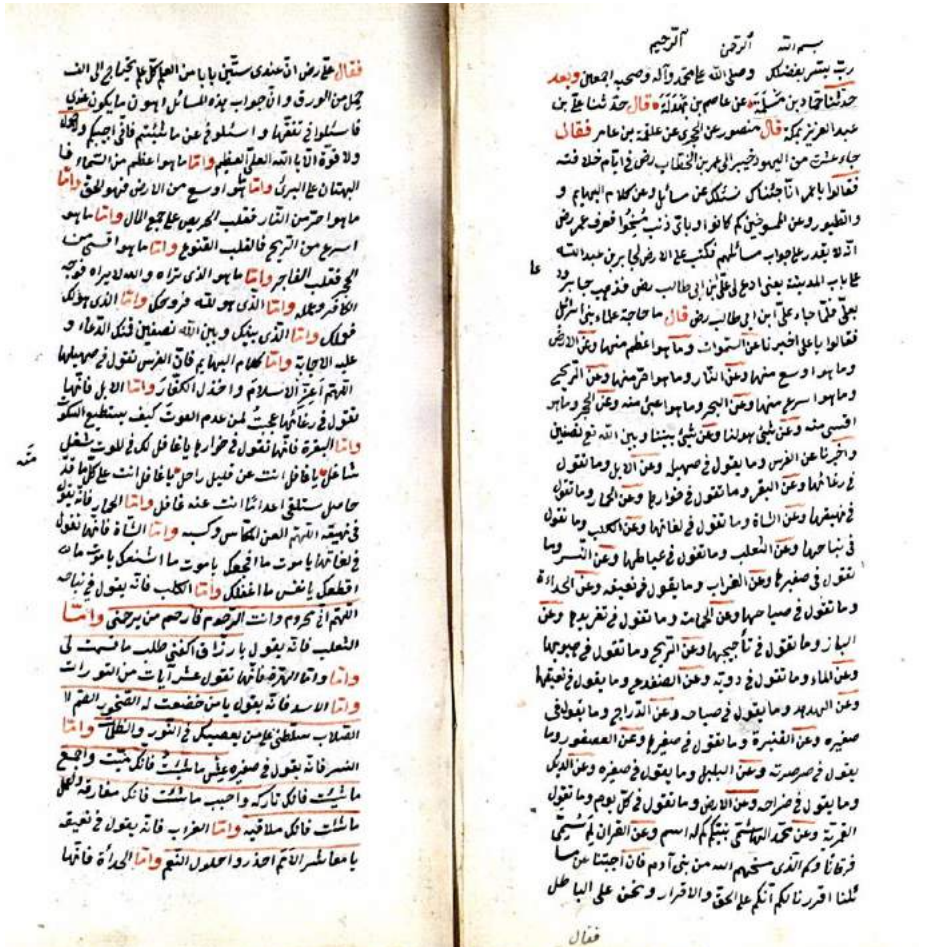 بسم الله الرحمن الرحيم
رب يسر بفضلك وصلى الله على محمد وآله وصحبه اجمعين وبعد
حدثنا حماد بن سلمة عن عاصم بن بهدلة قال حدثنا علي بن
عبد العزيز بمكة قال منصور عن الجرى عن علقمة بن عامر فقال
جاء عشرة من اليهود خيبر الى عمر بن الخطاب رض في ايام خلافته
فقالوا يا عمر انا جئناك نسئلك عن مسائل وعن كلام البهايم و
والطيور وعن الممسوخين كم كانوا وباى ذنب مسخوا فعرف عمر رض
انه لا يقدر على جواب مسائلهم فكتب على الارض لجابر بن عبد الله
على باب المدينة يعنى ادع لى على بن ابى طالب رض فذهب جابر
فلما جاء على ابن ابى طالب رض قال ما حاجة علماء بنى اسرائل
فقالوا يا على اخبرنا عن السموات وما هو اعظم منها وعن الارض
وما هو اوسع منها وعن النار وما هو احر منها وعن الريح
وما هو اسرع منها وعن البحر وما هو اغنى منه وعن الحجر وما هو
اقسى منه وعن شئ هو لنا وعن شئ بيننا وبين الله تع نصفين
واخبرنا عن الفرس وما يقول في صهيله وعن الابل وما تقول
في رغائها وعن البقر وما تقول في خوارها وعن الحمار وما تقول
في نهيقها وعن الشاة وما تقول في لغائها وعن الكلب وما تقول
في نباحها وعن الثعلب وما تقول في عياطها وعن النسر وما
تقول في صفيرها وعن الغراب وما يقول في نعيقه وعن الحداءة
وما تقول في صياحها وعن الحمامة وما تقول في تغريدها وعن
الباز وما تقول في تأجيجها وعن الريح وما تقول في هبوبها
وعن الماء وما تقول في دويه وعن الضفدع وما يقول في نقيقها
وعن الهدهد وما يقول في صياحه وعن الدراج وما يقول في
صغيره وعن القنبرة وما تقول في صفيرها وعن العصفور وما
يقول في صرصرته وعن البلبل وما يقول في صفيره وعن الديك
وما يقول في صراخه وعن الارض وما تقول في كل يوم وما تقول
القرية وعن محمد الهاشمى نبيكم كم له اسم وعن القران لم سمى
فرقانا وكم الذى مسخهم الله من بنى آدم فان اجبتنا عن ما
قلنا اقررنا لكم انكم على الحق والاقرار ونحن على الباطل
فقال
فقال على رض ان عندى ستين بابا من العلم كل علم يحتاج الى الف
حمل من الورق وان جواب هذه المسائل اهون ما يكون عندى
فاسئلوا في تفقها واسئلونى عن ما شئتم فانى اجيبكم ولا حول
ولا قوة الا بالله العلى العظيم واما ما هو اعظم من السماء فا
البهتان على البرئ واما هو اوسع من الارض فهو الحق واما
ما هو احر من النار فقلب الحريص على جمع المال واما ما هو
اسرع من الريح فالقلب القنوع واما ما هو اقسى من
الحجر فقلب الفاجر واما ما هو الذى نراه والله لا يراه فوجه
الكافر وعمله واما الذى هو لله فروحك واما الذى هو لك
فعملك واما الذى بينك وبين الله نصفين فمنك الدعاء و
عليه الاجابة واما كلام البهايم فان الفرس تقول في صهيلها
اللهم اعز الاسلام واخذل الكفار واما الابل فانها
تقول في رغائها عجبت لمن عدم القوت كيف يستطيع السكوت
واما البقرة فانها تقول في خوارها يا غافل لك في الموت شغل
شاغل يا غافل انت عن قليل راحل يا غافل انت على كل ما قد
منه
حاصل ستلقى اعدائنا انت عنه غافل واما الحمار فانه يقول
في نهيقه اللهم العن المكاس وكسبه واما الشاة فانها تقول
في لغائها يا موت ما افجعك يا موت ما اشنعك يا موت ما
اقطعك يا نفس ما اغفلك واما الكلب فانه يقول في نباحه
اللهم انى محروم وانت الرحوم فارحم من يرحمنى واما
الثعلب فانه يقول يا رزاق اكفنى طلب ما قسمت لى
واما واما الهرة فانها تقول عشر آيات من التورات
واما الاسد فانه يقول يا من خضعت له الصخور الصم
الصلاب سلطنى على من يعصيك في النور والظلمات واما
النسر فانه يقول في صفيره عش ما شئت فانك ميت واجمع
ما شئت فانك تاركه واحبب ما شئت فانك مفارقه واعمل
ما شئت فانك ملاقيه واما الغراب فانه يقول في نعيقه
يا معاشر الامم احذروا حلول النقم واما الحدأة فانها